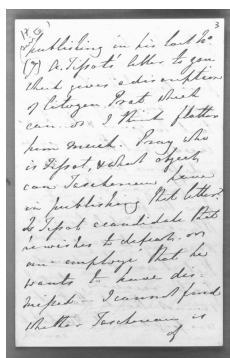 3
publishing in his last No
(7) A. Tissot's letter to you
which gives a description
of Citizen Prat which
can or I think flatter
him much. Pray who
is Tissot, & what object
can Tascherau have
in publishing that letter?
Is Tissot a candidate that
he wishes to defeat, or
an employé that he
wants to have dis-
missed — I cannot find
whether Tascherau is
of